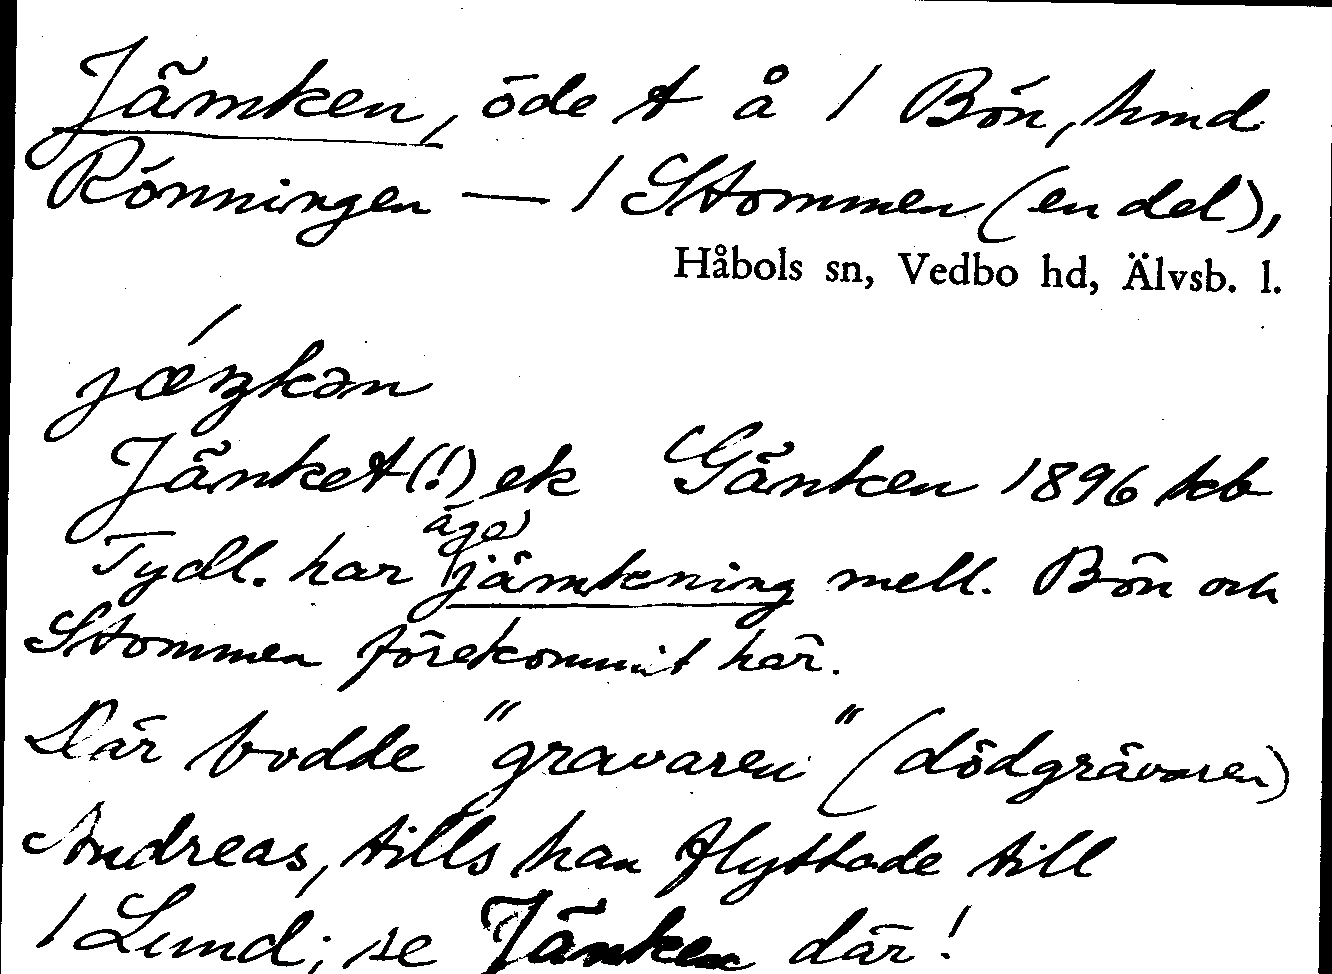 Jämken, öde t å 1 Bön, hmd
Rönningen — 1 Stommen (en del),
Håbols sn, Vedbo hd, Älvsb. l.
jǽŋkən
Jänket(!) ek Gänken 1896 kb
Tydl. har äga jämkning mell. Bön och
Stommen förekommit här.
Där bodde "gravaren" (dödgrävaren)
Andreas, tills han flyttade till
1 Lund; se Jänken där!